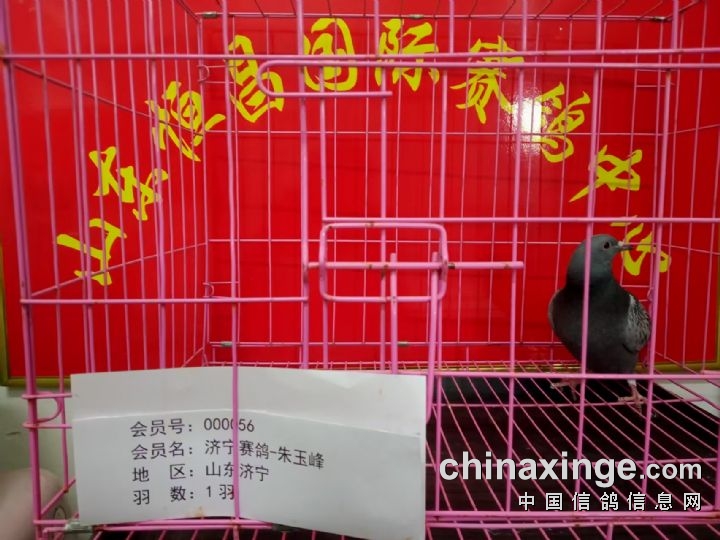 山东恒昌国际赛鸽中心
会员号：000056
会员名：济宁赛鸽-朱玉峰
地 区：山东济宁
羽 数：1羽
chinaxinge.com
中国信鸽信息网